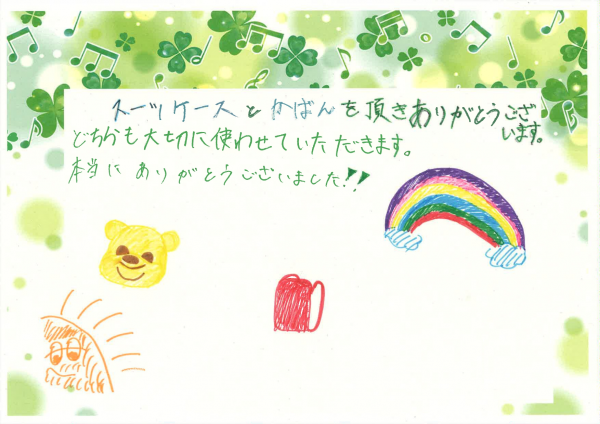 スーツケースとかばんを頂きありがとうござ
います。
どちらも大切に使わせていただきます。
本当に ありがとうございました!!